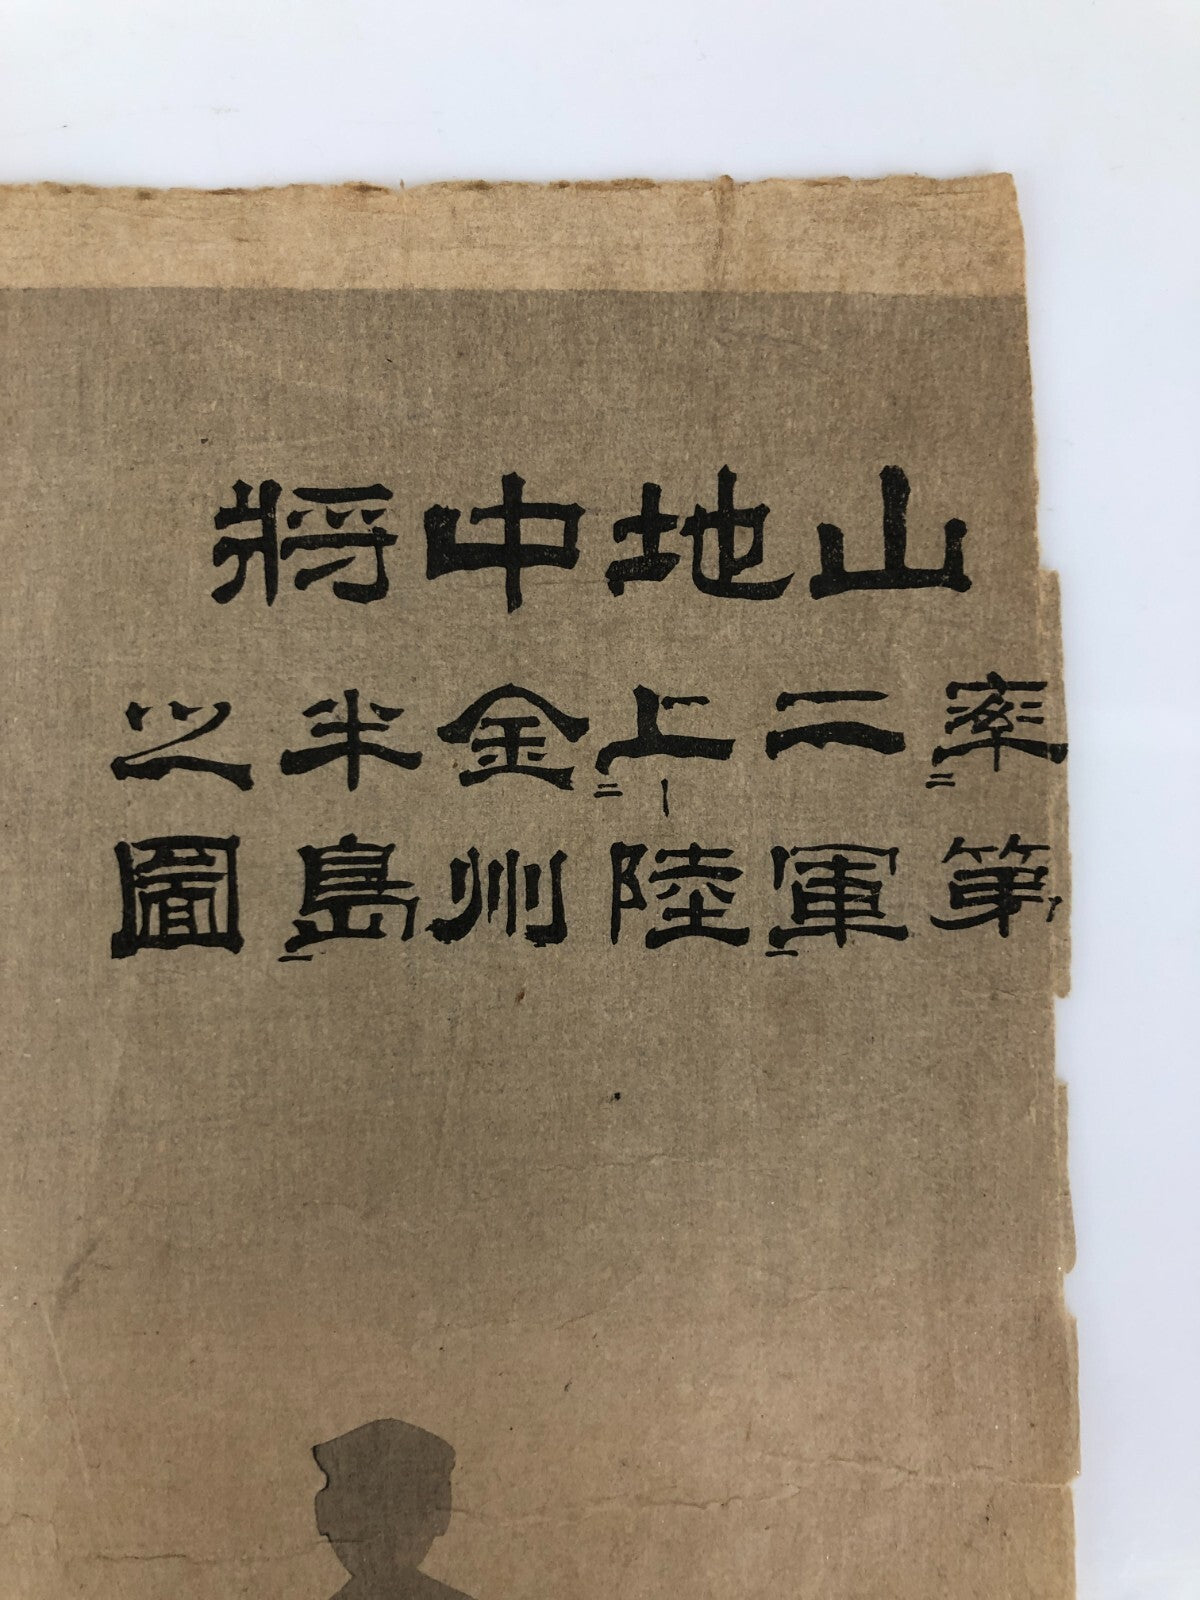 山地中將
率㆓第
二軍㆒
上㆓陸
金州
半島㆒
之圖